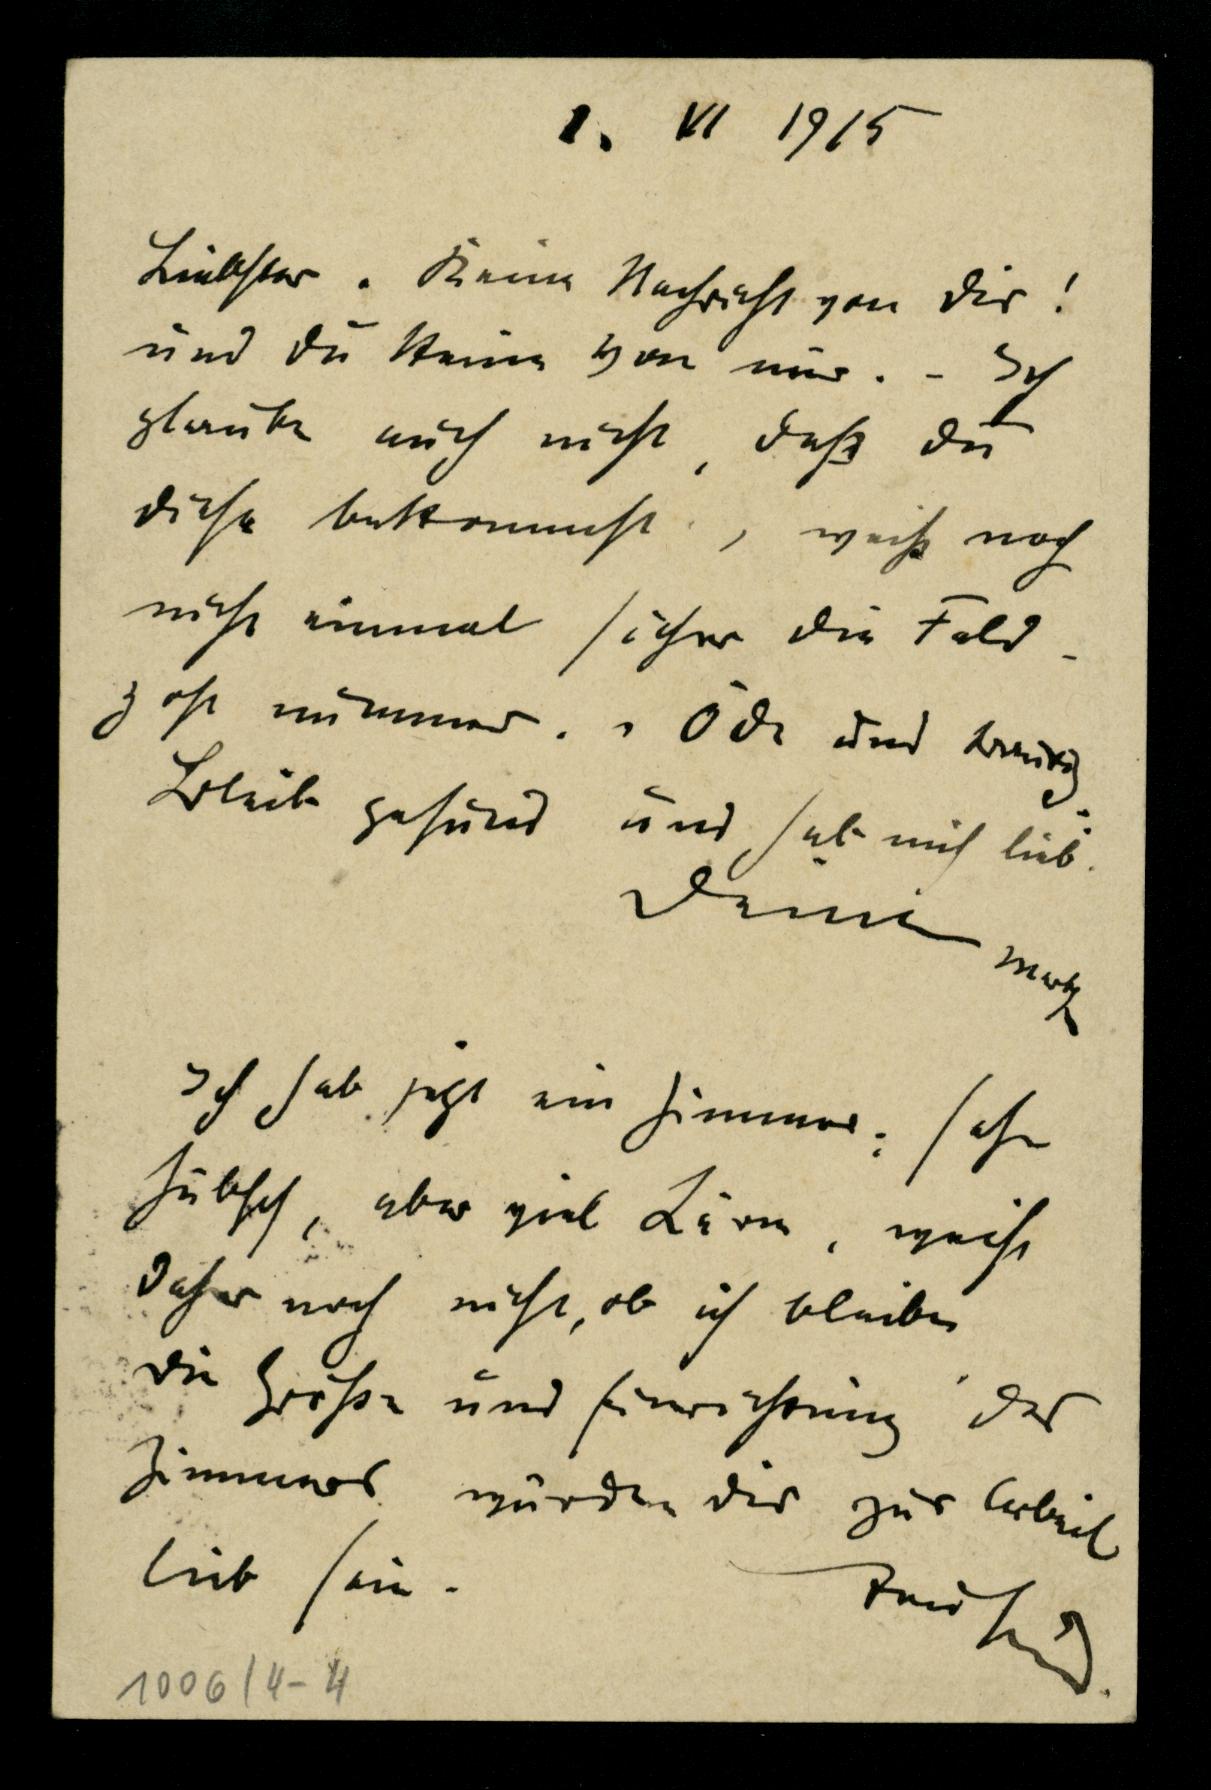 1. VI 1915
Liebster. Keine Nachricht von dir!
und du keine von mir. - Ich
glaube auch nicht, daß du
diese bekommst, weiß noch
nicht einmal sicher die Feld-
post nummer. - Öde und traurig
Bleib gesund und hab mich lieb.
Deine
Ich hab jetzt ein Zimmer; sehr
hübsch, aber viel Lärm, weiß
daher noch nicht, ob ich bleibe.
die Größe und Einrichtung des
Zimmers würden dir zur Arbeit
lieb sein.
Tausend
1006/4-4